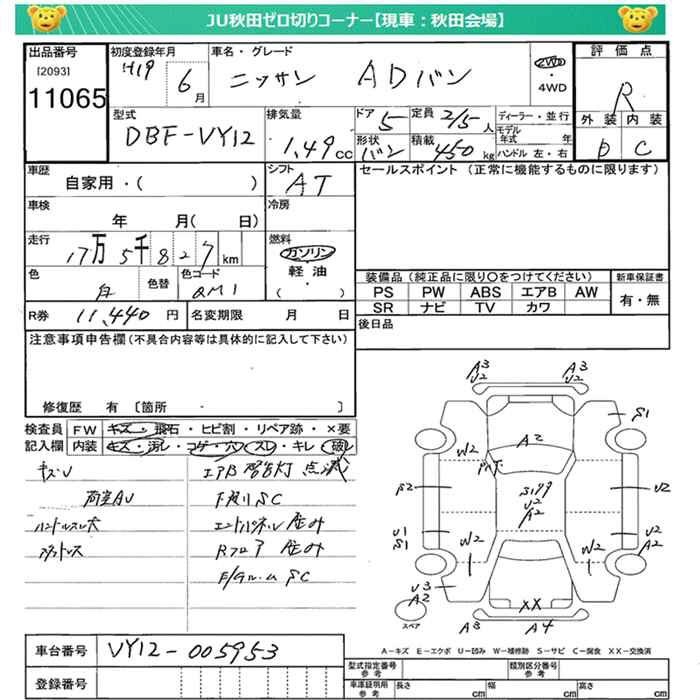 JU秋田ゼロ切りコーナー【現車：秋田会場】
出品番号
[2093]
11065
初度登録年月
H19 6月
車名・グレード
ニッサン ADバン
2WD
・
4WD
評価点
R
外装 内装
D C
型式
DBF-VY12
排気量
1,49cc
ドア
5
定員
2/5人
形状
バン
積載
450kg
ディーラー・並行
モデル年式 年
ハンドル 左・右
車歴
自家用・( )
シフト
AT
セールスポイント（正常に機能するものに限ります）
車検
年 月( 日)
冷房
走行
17万5千827km
燃料
ガソリン
・
軽油
( )
色
白
色替
色コード
QM1
装備品（純正品に限り〇をつけてください）
PS PW ABS エアB AW
SR ナビ TV カワ
新車保証書
有・無
R券 11,440円
名変期限 月 日
後日品
注意事項申告欄(不具合内容等は具体的に記入して下さい)
修復歴 有 〔箇所 〕
検査員記入欄
FW キズ・飛石・ヒビ割・リペア跡・×要
内装 キズ・汚レ・コゲ・穴・スレ・キレ・破レ
キズU
荷室AU
ハンドルスレ大
エアB警告灯点滅
F廻りSC
エンドパネル歪み
Rフロア歪み
F/クルームSC
A3
U2
A3
U2
S1
W2
A2
S2
S199
U2
A2
U2
U1
S1
W2
W2
U2
A2
U3
A2
スペア
XX
A3
A4
A－キズ E－エクボ U－凹み W－補修跡 S－サビ C－腐食 XX－交換済
車台番号
VY12-005953
登録番号
型式指定番号
参考
類別区分番号
参考
車庫証明用
参考
長さ cm
幅 cm
高さ cm